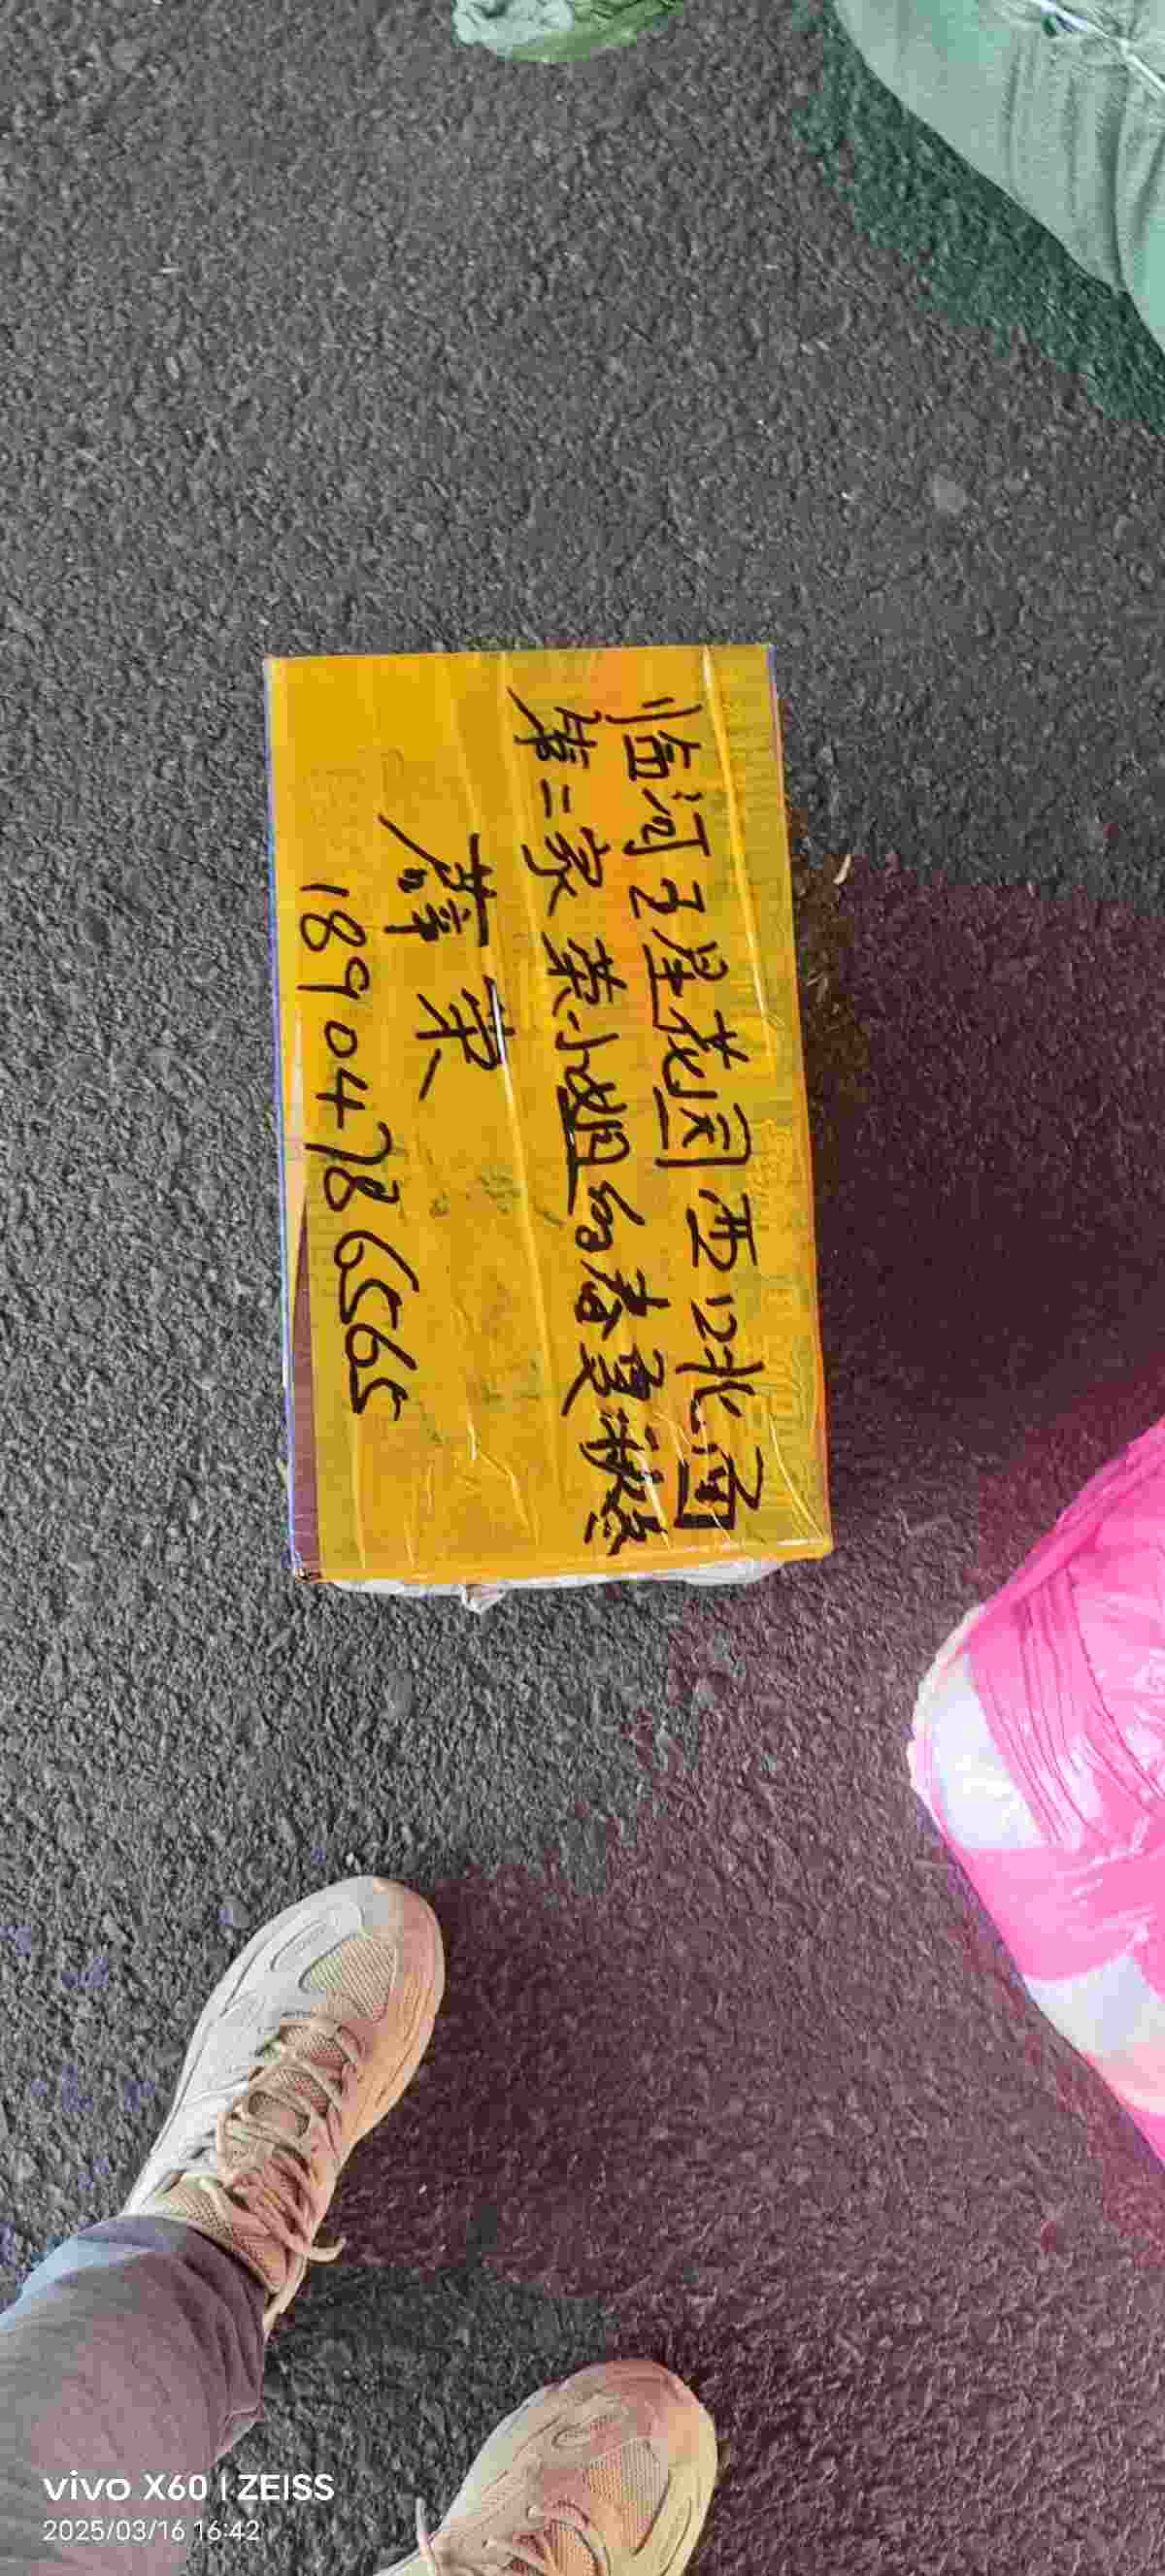 临河五星花园西12北面
第二家 荣小姐的春夏秋冬
薛荣
18904786565
vivo X60 | ZEISS
2025/03/16 16:42